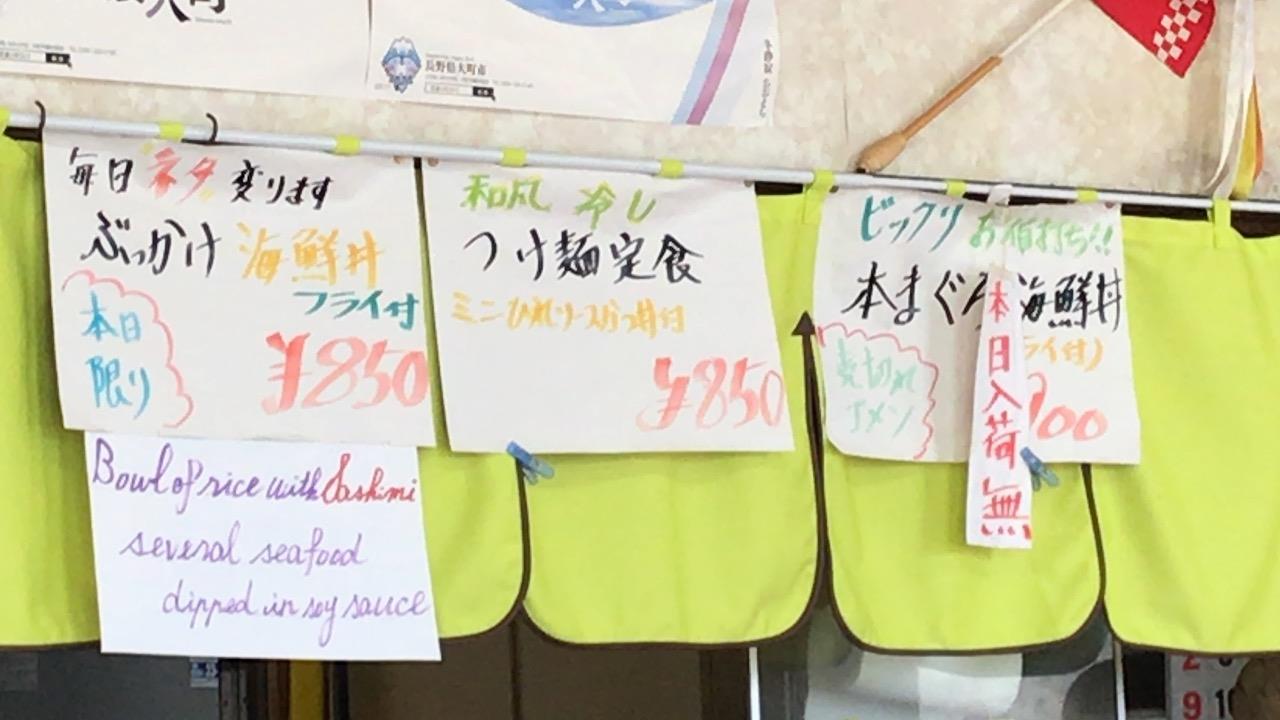 長野県大町市
毎日ネタ変ります
ぶっかけ海鮮丼
フライ付
本日
限り
¥850
Bowl of rice with Sashimi
several seafood
dipped in soy sauce
和風 冷し
つけ麺定食
ミニひれソースかつ丼付
¥850
ビックリ お値打ち!!
本まぐろ 海鮮丼
ライ付)
売切れ
ゴメン
00
本日入荷無